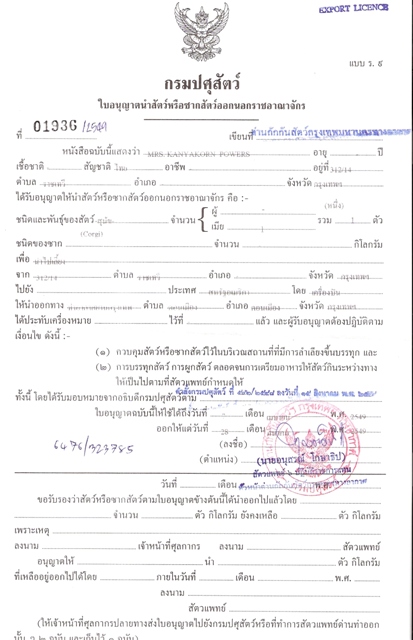 EXPORT LICENCE
แบบ ร. ๙
กรมปศุสัตว์
ใบอนุญาตนำสัตว์หรือซากสัตว์ออกนอกราชอาณาจักร
ที่ 01936 /2549 เขียนที่
หนังสือฉบับนี้แสดงว่า MRS. KANYAKORN POWERS อายุ ปี
เชื้อชาติ สัญชาติ ไทย อาชีพ อยู่ที่ 312/14
ตำบล ราชเทวี อำเภอ จังหวัด กรุงเทพฯ
ได้รับอนุญาตให้นำสัตว์หรือซากสัตว์ออกนอกราชอาณาจักร คือ :-
(หนึ่ง)
ชนิดและพันธุ์ของสัตว์ สุนัข จำนวน { ผู้ - เมีย 1 รวม 1 ตัว
(Corgi)
ชนิดของซาก จำนวน กิโลกรัม
เพื่อ นำไปเลี้ยง
จาก 312/14 ตำบล ราชเทวี อำเภอ จังหวัด กรุงเทพฯ
ไปยัง ประเทศ สหรัฐอเมริกา โดย เครื่องบิน
ให้นำออกทาง ตำบล ดอนเมือง อำเภอ ดอนเมือง จังหวัด กรุงเทพฯ
ได้ประทับเครื่องหมาย ไว้ที่ แล้ว และผู้รับอนุญาตต้องปฏิบัติตาม
เงื่อนไข ดังนี้ :-
(๑) ควบคุมสัตว์หรือซากสัตว์ไว้ในบริเวณสถานที่ที่มีการลำเลียงขึ้นบรรทุก และ
(๒) การบรรทุกสัตว์ การผูกสัตว์ ตลอดจนการเตรียมอาหารให้สัตว์กินระหว่างทาง
ให้เป็นไปตามที่สัตวแพทย์กำหนดให้
ทั้งนี้ โดยได้รับมอบหมายจากอธิบดีกรมปศุสัตว์ตาม
ใบอนุญาตฉบับนี้ให้ใช้ได้ถึงวันที่ เดือน เมษายน พ.ศ. 2549
ออกให้แต่วันที่ 28 เดือน พ.ศ.
6476/323785
(ลงชื่อ)
(ตำแหน่ง)
วันที่ เดือน พ.ศ.
ขอรับรองว่าสัตว์หรือซากสัตว์ตามใบอนุญาตข้างต้นนี้ได้นำออกไปแล้วโดย
จำนวน ตัว กิโลกรัม ยังคงเหลือ ตัว กิโลกรัม
เพราะเหตุ
ลงนาม เจ้าหน้าที่ศุลกากร ลงนาม สัตวแพทย์
อนุญาตให้ นำ ตัว กิโลกรัม
ที่เหลืออยู่ออกไปได้โดย ภายในวันที่ เดือน พ.ศ.
ลงนาม
สัตวแพทย์
(ให้เจ้าหน้าที่ศุลกากรปลายทางส่งใบอนุญาตไปยังกรมปศุสัตว์หรือที่ทำการสัตวแพทย์ด่านท่าออก